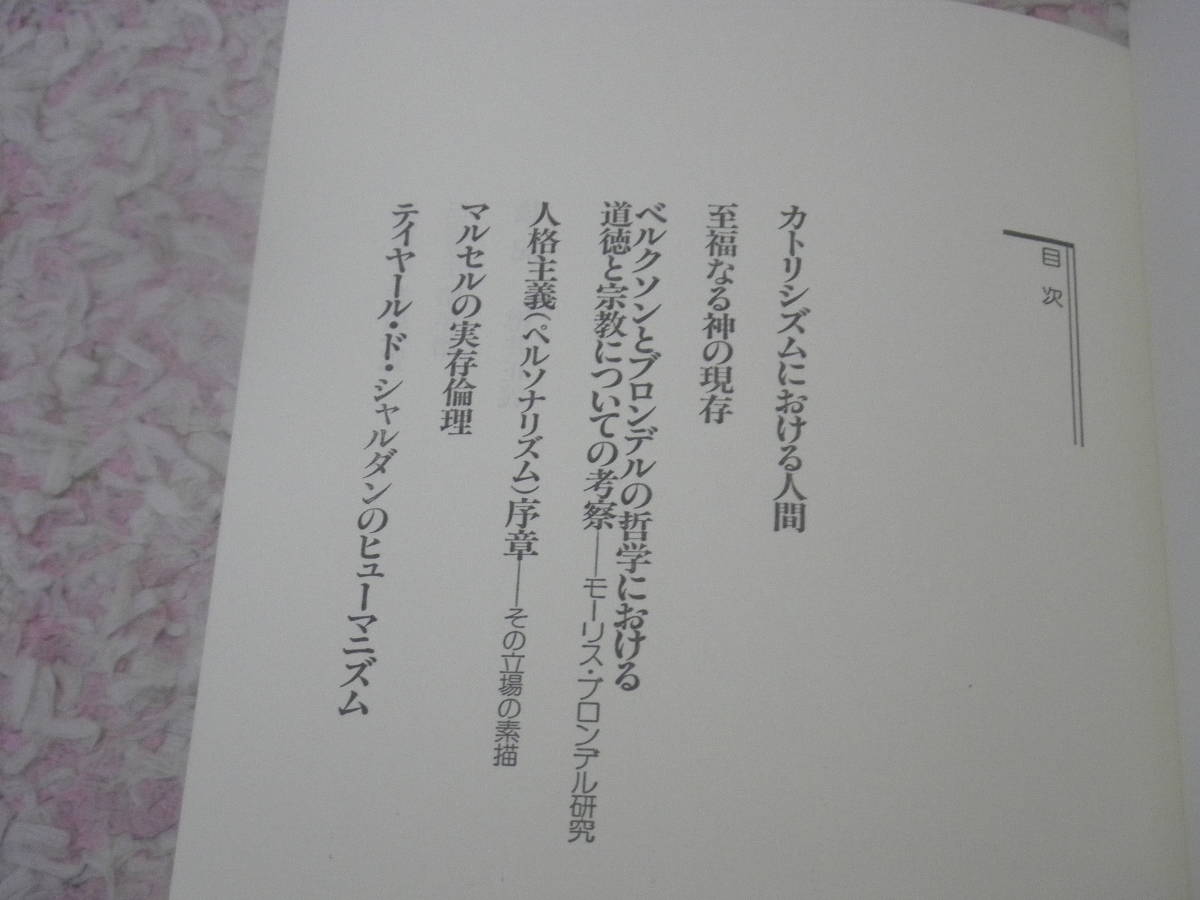 目次
カトリシズムにおける人間
至福なる神の現存
ベルクソンとブロンデルの哲学における
道徳と宗教についての考察──モーリス・ブロンデル研究
人格主義（ペルソナリズム）序章──その立場の素描
マルセルの実存倫理
テイヤール・ド・シャルダンのヒューマニズム